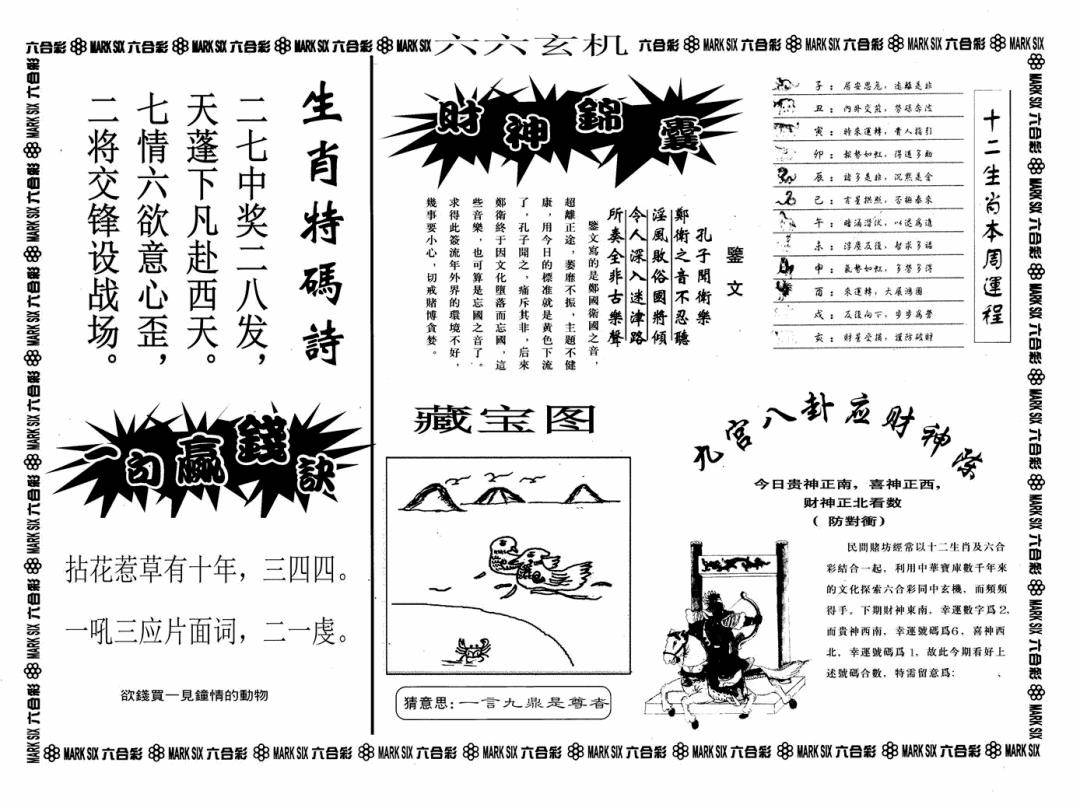 六合彩 MARK SIX 六合彩 MARK SIX 六合彩 MARK SIX 六合彩 MARK SIX 六六玄机 六合彩 MARK SIX 六合彩 MARK SIX 六合彩 MARK SIX 六合彩 MARK SIX
生肖特碼詩
二七中奖二八发，
天蓬下凡赴西天。
七情六欲意心歪，
二将交锋设战场。
一句赢錢訣
拈花惹草有十年，三四四。
一吼三应片面词，二一虔。
欲錢買一見鐘情的動物
財神錦囊
鑒文
孔子聞衛樂
鄭衛之音不忍聽
淫風敗俗國將傾
令人深入迷津路
所奏全非古樂聲
鑒文寫的是鄭國衛國之音，
超離正途，萎靡不振，主題不健
康，用今日的標准就是黄色下流
了，孔子聞之，痛斥其非，后來
鄭衛終于因文化墮落而忘國，這
些音樂，也可算是忘國之音了。
求得此簽流年外界的環境不好，
幾事要小心，切戒賭博貪婪。
十二生肖本周運程
子：居安思危，遠離是非
丑：内外交煎，勞碌奔波
寅：時來運轉，貴人指引
卯：
辰：諸多是非，沉默是金
巳：
午：
未：
申：氣勢如虹，多勞多得
酉：來運轉，大展鴻圖
戌：
亥：財星受損，謹防破財
藏宝图
猜意思：一言九鼎是尊者
九宫八卦应财神
今日贵神正南，喜神正西，
财神正北看数
（防對衝）
民間賭坊經常以十二生肖及六合
彩結合一起，利用中華寶庫數千年來
的文化探索六合彩同中玄機，而頻頻
得手。下期財神東南，幸運數字爲2，
而貴神西南，幸運號碼爲6，喜神西
北，幸運號碼爲1，故此今期看好上
述號碼合數，特需留意爲：　、
六合彩 MARK SIX 六合彩 MARK SIX 六合彩 MARK SIX 六合彩 MARK SIX 六合彩 MARK SIX 六合彩 MARK SIX
MARK SIX 六合彩 MARK SIX 六合彩 MARK SIX 六合彩 MARK SIX 六合彩 MARK SIX 六合彩 MARK SIX 六合彩 MARK SIX
MARK SIX 六合彩 MARK SIX 六合彩 MARK SIX 六合彩 MARK SIX 六合彩 MARK SIX 六合彩 MARK SIX 六合彩 MARK SIX 六合彩 MARK SIX 六合彩 MARK SIX 六合彩 MARK SIX